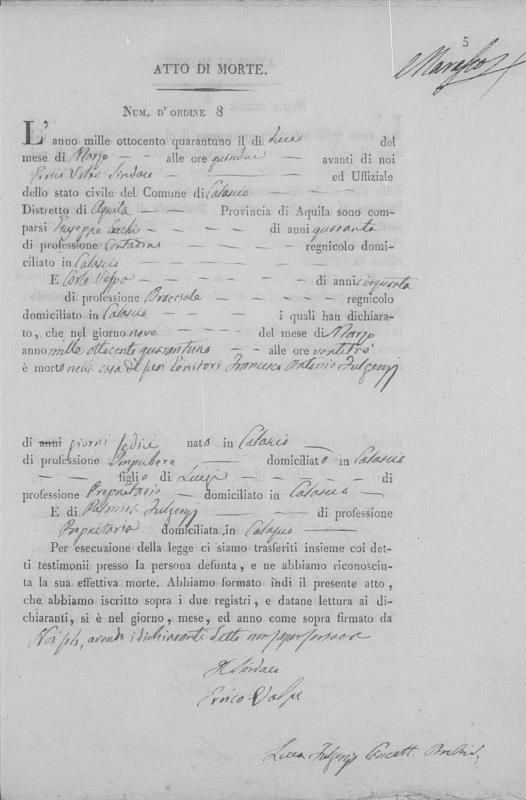 5
ATTO DI MORTE.
NUM. D' ORDINE 8
L' anno mille ottocento quarantuno il di dieci del
mese di Marzo — — alle ore quindici — avanti di noi
Errico Volpe Sindaco ed Uffiziale
dello stato civile del Comune di Calascio — — —
Distretto di Aquila — — Provincia di Aquila sono com-
parsi Giuseppe — di anni quaranta
di professione Contadino — — — — regnicolo domi-
ciliato in Calascio — — — — —
E Carlo Volpe — — — — — di anni cinquanta
di professione Bracciale — — — — — regnicolo
domiciliato in Calascio — — i quali han dichiara-
to, che nel giorno nove — — — del mese di Marzo
anno mille ottocento quarantuno — — alle ore ventitrè
è morto nella casa de' suoi Genitori Francesco Antonio Fulgenzj
di anni giorni sedici nato in Calascio —
di professione Impubere — domiciliato in Calascio
— — figlio di Luigi — — — — — di
professione Proprietario — domiciliato in Calascio —
E di Palmira Fulgenzj — — di professione
Proprietaria domiciliata in Calascio —
Per esecuzione della legge ci siamo trasferiti insieme coi det-
ti testimonii presso la persona defunta, e ne abbiamo riconosciu-
ta la sua effettiva morte. Abbiamo formato indi il presente atto,
che abbiamo iscritto sopra i due registri, e datane lettura ai di-
chiaranti, si è nel giorno, mese, ed anno come sopra firmato da
Noi solo, avendo i dichiaranti detto non saper scrivere
Il Sindaco
Errico Volpe
Fulgenzj